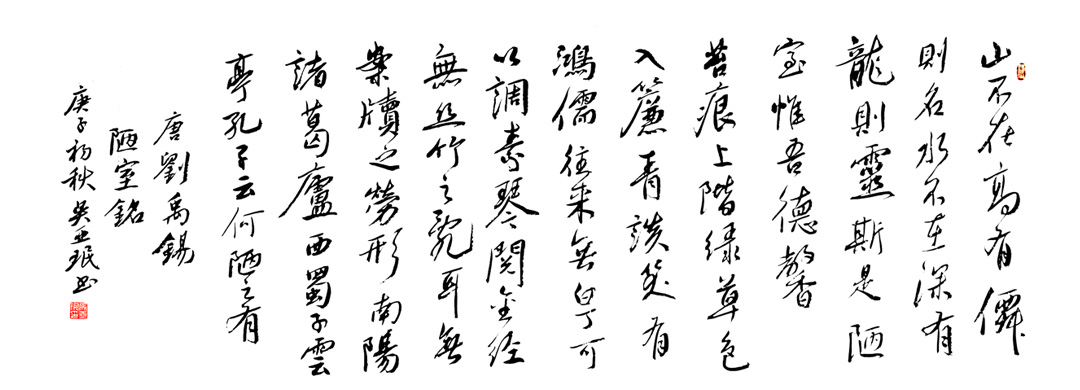 山不在高有僊
則名水不在深有
龍則靈斯是陋
室惟吾德馨
苔痕上階緑草色
入簾青談笑有
鴻儒往来無白丁可
以調素琴閱金经
無丝竹之亂耳無
案牘之勞形南陽
諸葛廬西蜀子雲
亭孔子云何陋之有
唐劉禹錫
陋室銘
庚子初秋吴亚珉书